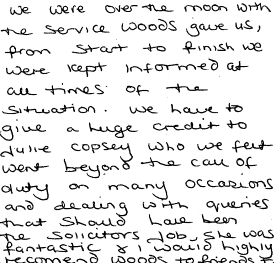 we were over the moon with
the service woods gave us,
from start to finish we
were kept informed at
all times of the
situation. we have to
give a huge credit to
Julie Copsey who we felt
went beyond the call of
duty on many occasions
and dealing with queries
that should have been
the solicitors job. she was
fantastic & I would highly
recomend woods to friends &